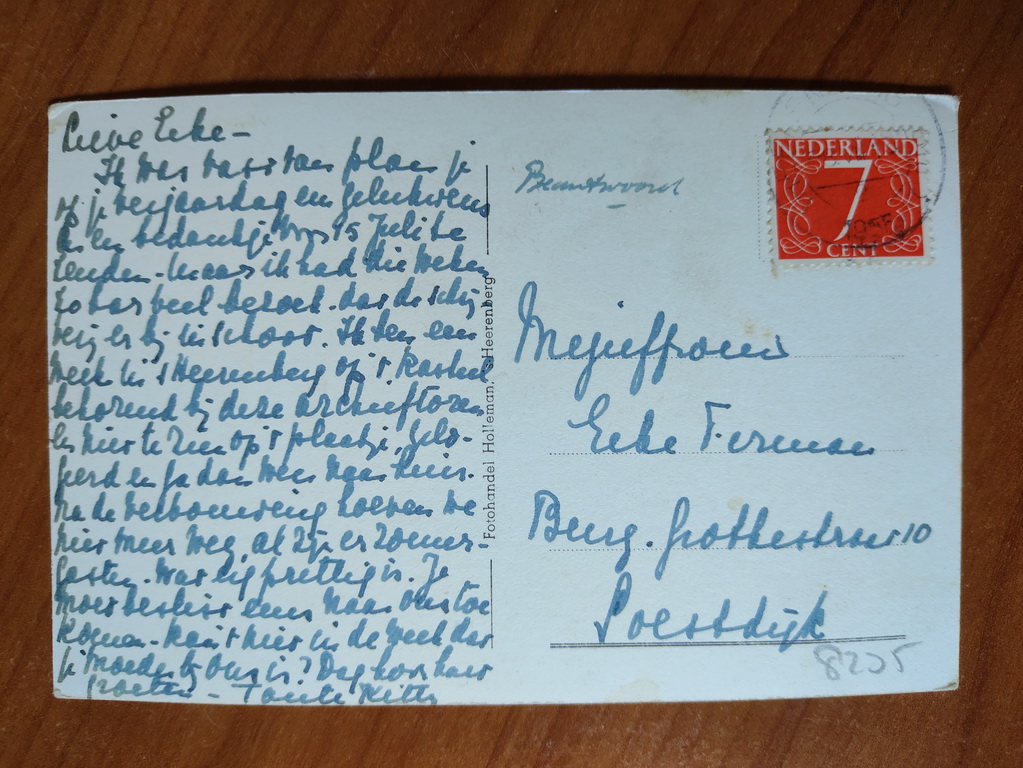 Lieve Eeke -
Ik was vast van plan je
op je verjaardag een gelukwens
& en bedankje voor 15 Juli te
zenden - maar ik had die weken
zo bar veel bezoek. dat de schrij-
verij er bij in schoot. Ik ben een
week in 's Heerenberg op 't kasteel
behorend bij deze
hier te zien op 't plaatje, gelo-
geerd en ga dan weer naar huis.
Na de verbouwing hoeven we
niet meer weg, al zijn er zomer-
gasten. Wat erg prettig is. Je
moet beslist eens naar ons toe
komen - kan 't niet in de week dat
je moeder bij ons is? Dag hoor haar
groeten - Tante Kitty
Fotohandel Holleman, 's Heerenberg
Beantwoord
NEDERLAND
7
CENT
Mejuffrouw
Eeke Ferman
Burg. Grothestraat 10
Soestdijk
8205